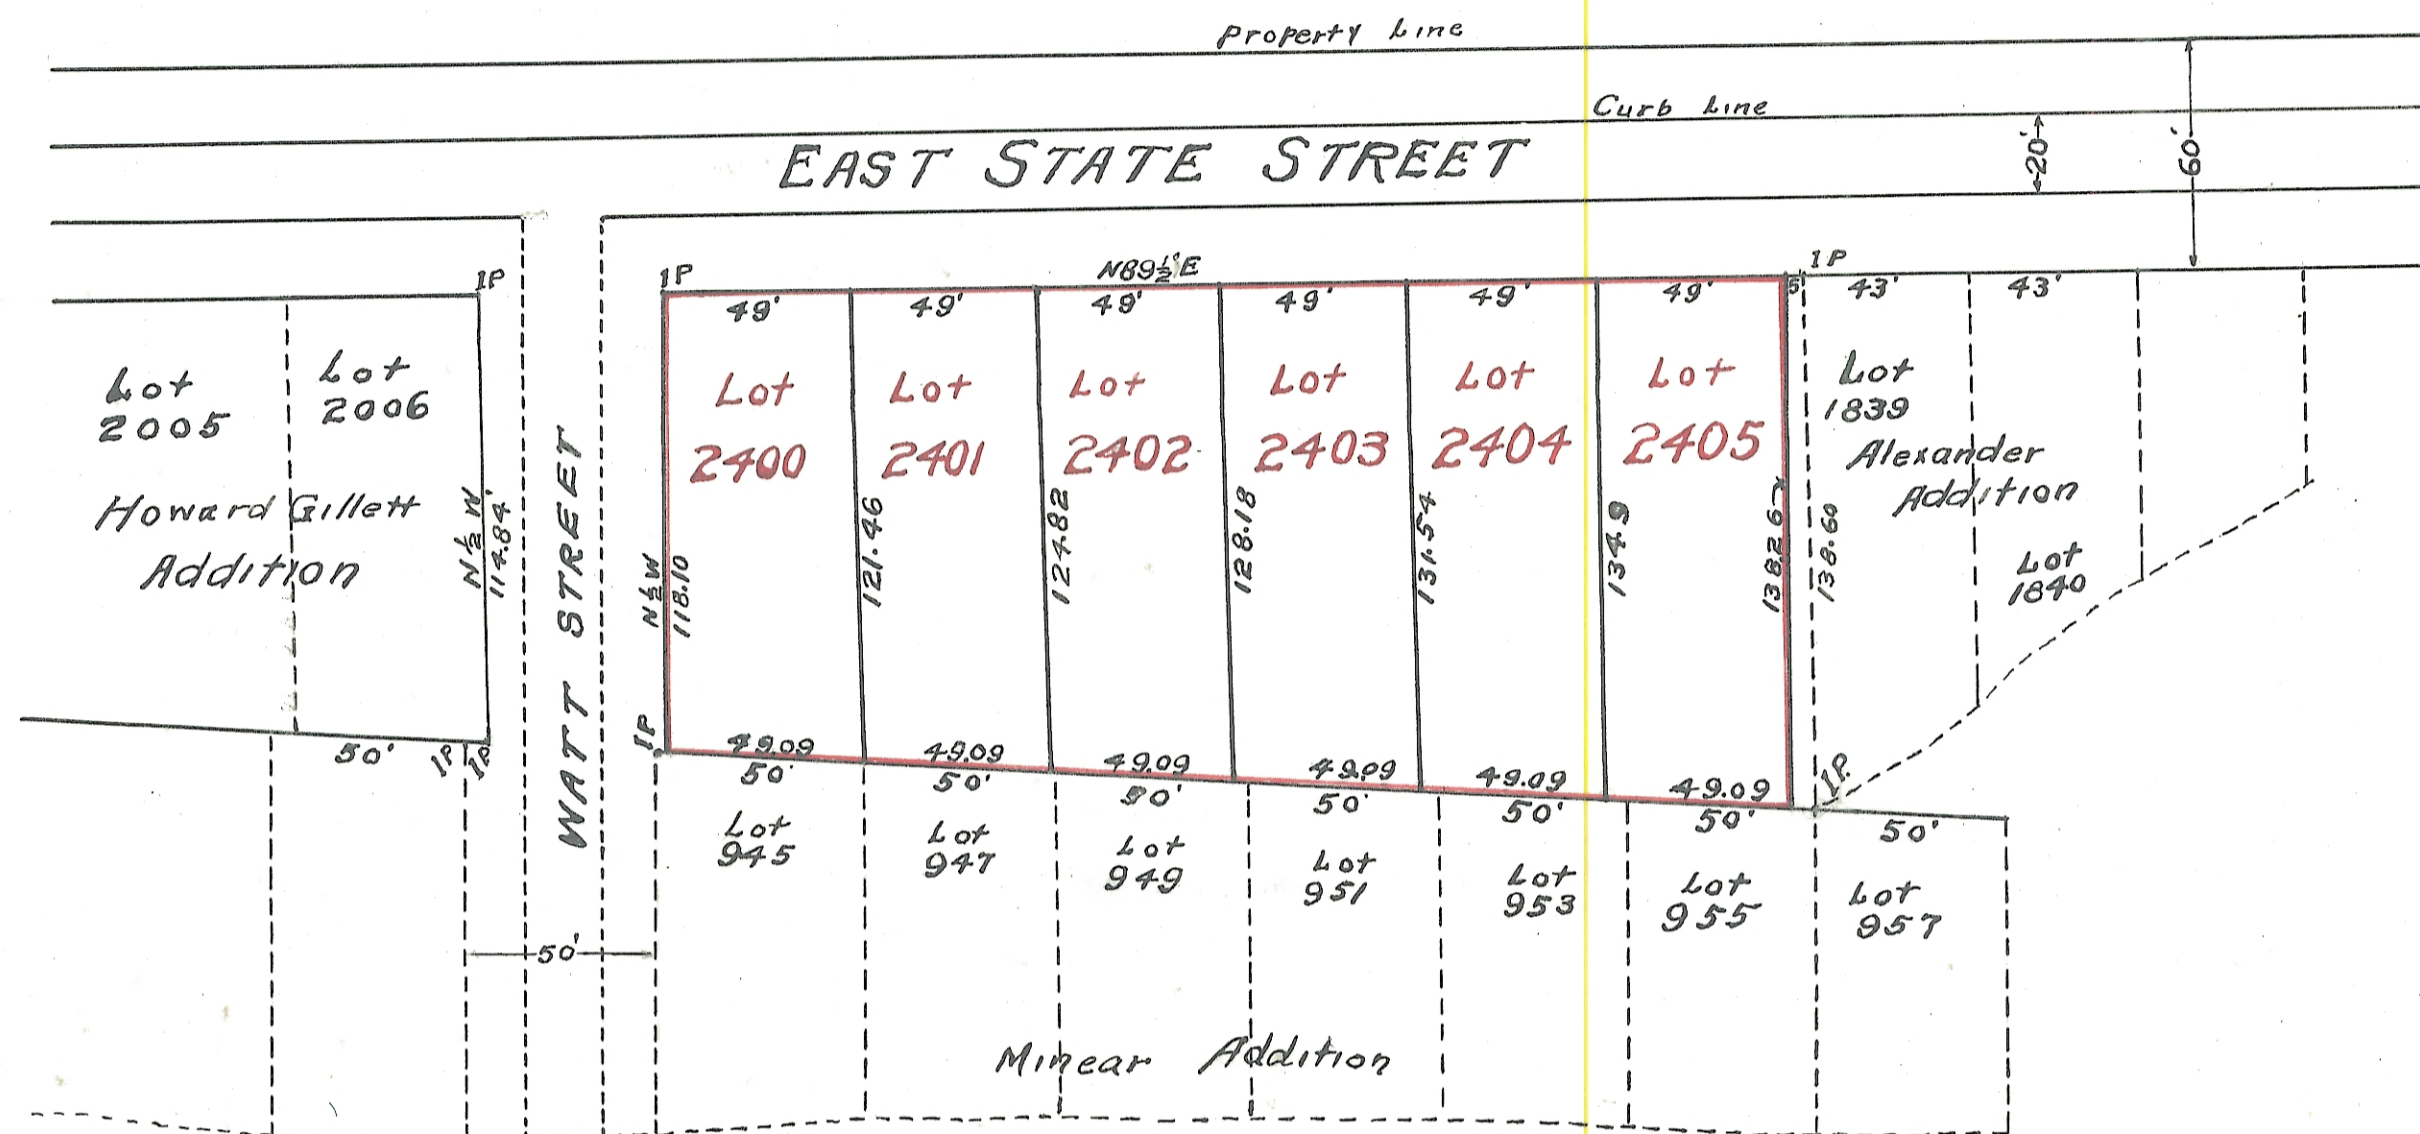 Property Line
Curb Line
EAST STATE STREET
20'
60'
IP
IP
N89½°E
IP
49'
49'
49'
49'
49'
49'
5'
43'
43'
Lot
2005
Lot
2006
Howard Gillett
Addition
N½W
114.84'
WATT STREET
N½W
118.10
Lot
2400
121.46
Lot
2401
124.82
Lot
2402
128.18
Lot
2403
131.54
Lot
2404
134.9
Lot
2405
138.26
138.60
Lot
1839
Alexander
Addition
Lot
1840
50'
IP
IP
IP
49.09
49.09
49.09
49.09
49.09
49.09
IP.
50'
50'
50'
50'
50'
50'
50'
Lot
945
Lot
947
Lot
949
Lot
951
Lot
953
Lot
955
Lot
957
50'
Minear Addition